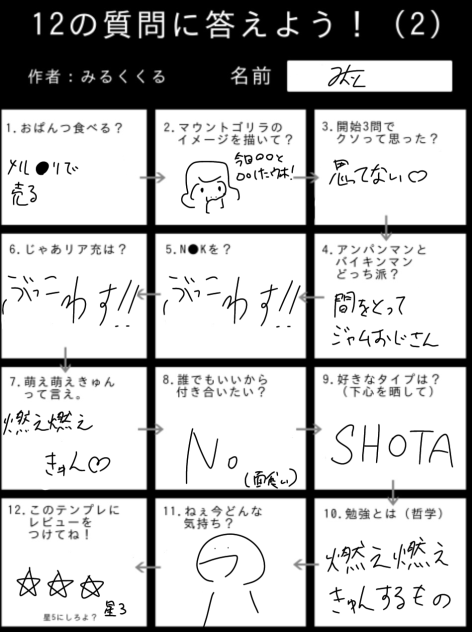 12の質問に答えよう！（2）
作者：みるくくる
名前
1.おぱんつ食べる？
メル●リで
売る
2.マウントゴリラの
イメージを描いて？
今日○○と
○○したウホ!
3.開始3問で
クソって思った？
思てない♡
4.アンパンマンと
バイキンマン
どっち派？
間をとって
ジャムおじさん
5.N●Kを？
ぶっこわす!!
6.じゃあリア充は？
ぶっこわす!!
7.萌え萌えきゅん
って言え。
燃え燃え
きゅん♡
8.誰でもいいから
付き合いたい？
No
(面食い)
9.好きなタイプは？
（下心を晒して）
SHOTA
10.勉強とは（哲学）
燃え燃え
きゅんするもの
11.ねぇ今どんな
気持ち？
12.このテンプレに
レビューを
つけてね！
☆☆☆ 星3
星5にしろよ？